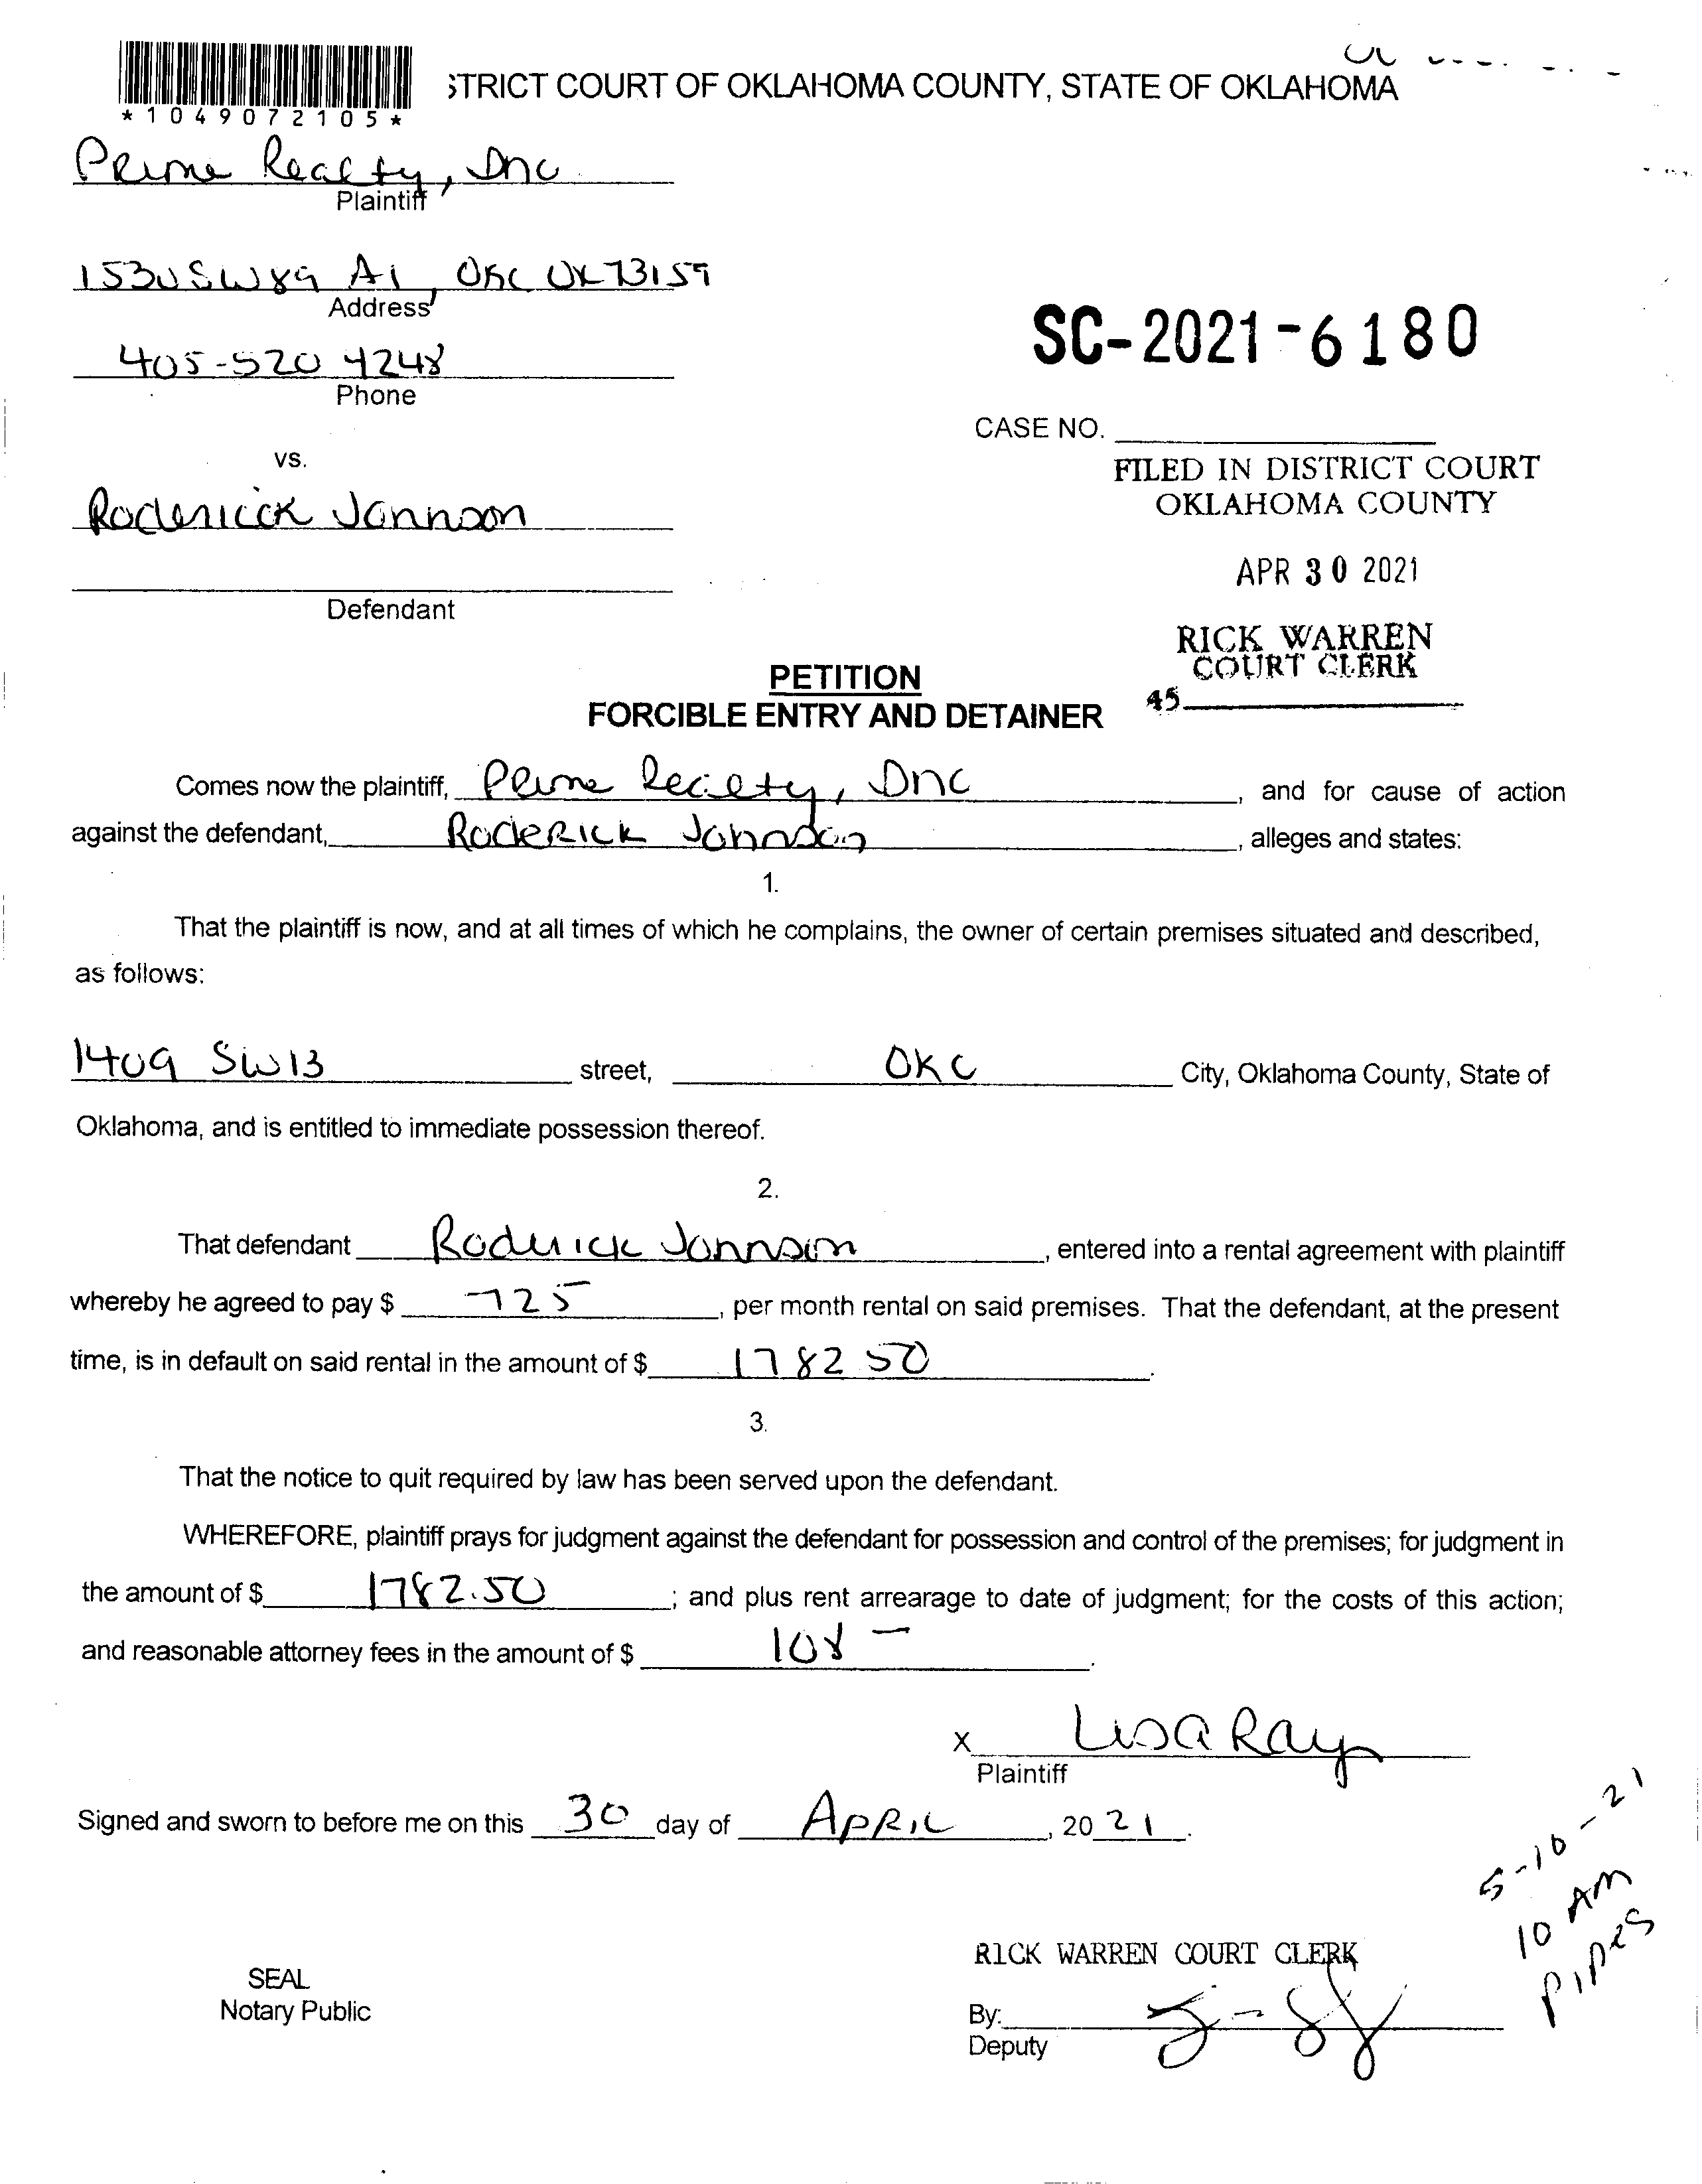 *1049072105*
STRICT COURT OF OKLAHOMA COUNTY, STATE OF OKLAHOMA
Prime Realty, Inc
Plaintiff
1530 SW 89 A1, OKC OK 73159
Address
405-520 4248
Phone
SC-2021-6180
CASE NO.
vs.
FILED IN DISTRICT COURT
OKLAHOMA COUNTY
Roderick Johnson
APR 30 2021
Defendant
RICK WARREN
COURT CLERK
45
PETITION
FORCIBLE ENTRY AND DETAINER
Comes now the plaintiff, Prime Realty, Inc, and for cause of action
against the defendant, Roderick Johnson, alleges and states:
1.
That the plaintiff is now, and at all times of which he complains, the owner of certain premises situated and described,
as follows:
1409 SW 13 street, OKC City, Oklahoma County, State of
Oklahoma, and is entitled to immediate possession thereof.
2.
That defendant Roderick Johnson, entered into a rental agreement with plaintiff
whereby he agreed to pay $ 725, per month rental on said premises. That the defendant, at the present
time, is in default on said rental in the amount of $ 1782 50.
3.
That the notice to quit required by law has been served upon the defendant.
WHEREFORE, plaintiff prays for judgment against the defendant for possession and control of the premises; for judgment in
the amount of $ 1782.50; and plus rent arrearage to date of judgment; for the costs of this action;
and reasonable attorney fees in the amount of $ 108 –.
x Lisa Ray
Plaintiff
Signed and sworn to before me on this 30 day of APRIL, 20 21.
5-10-21
10 AM
PIPES
RICK WARREN COURT CLERK
SEAL
Notary Public
By:
Deputy